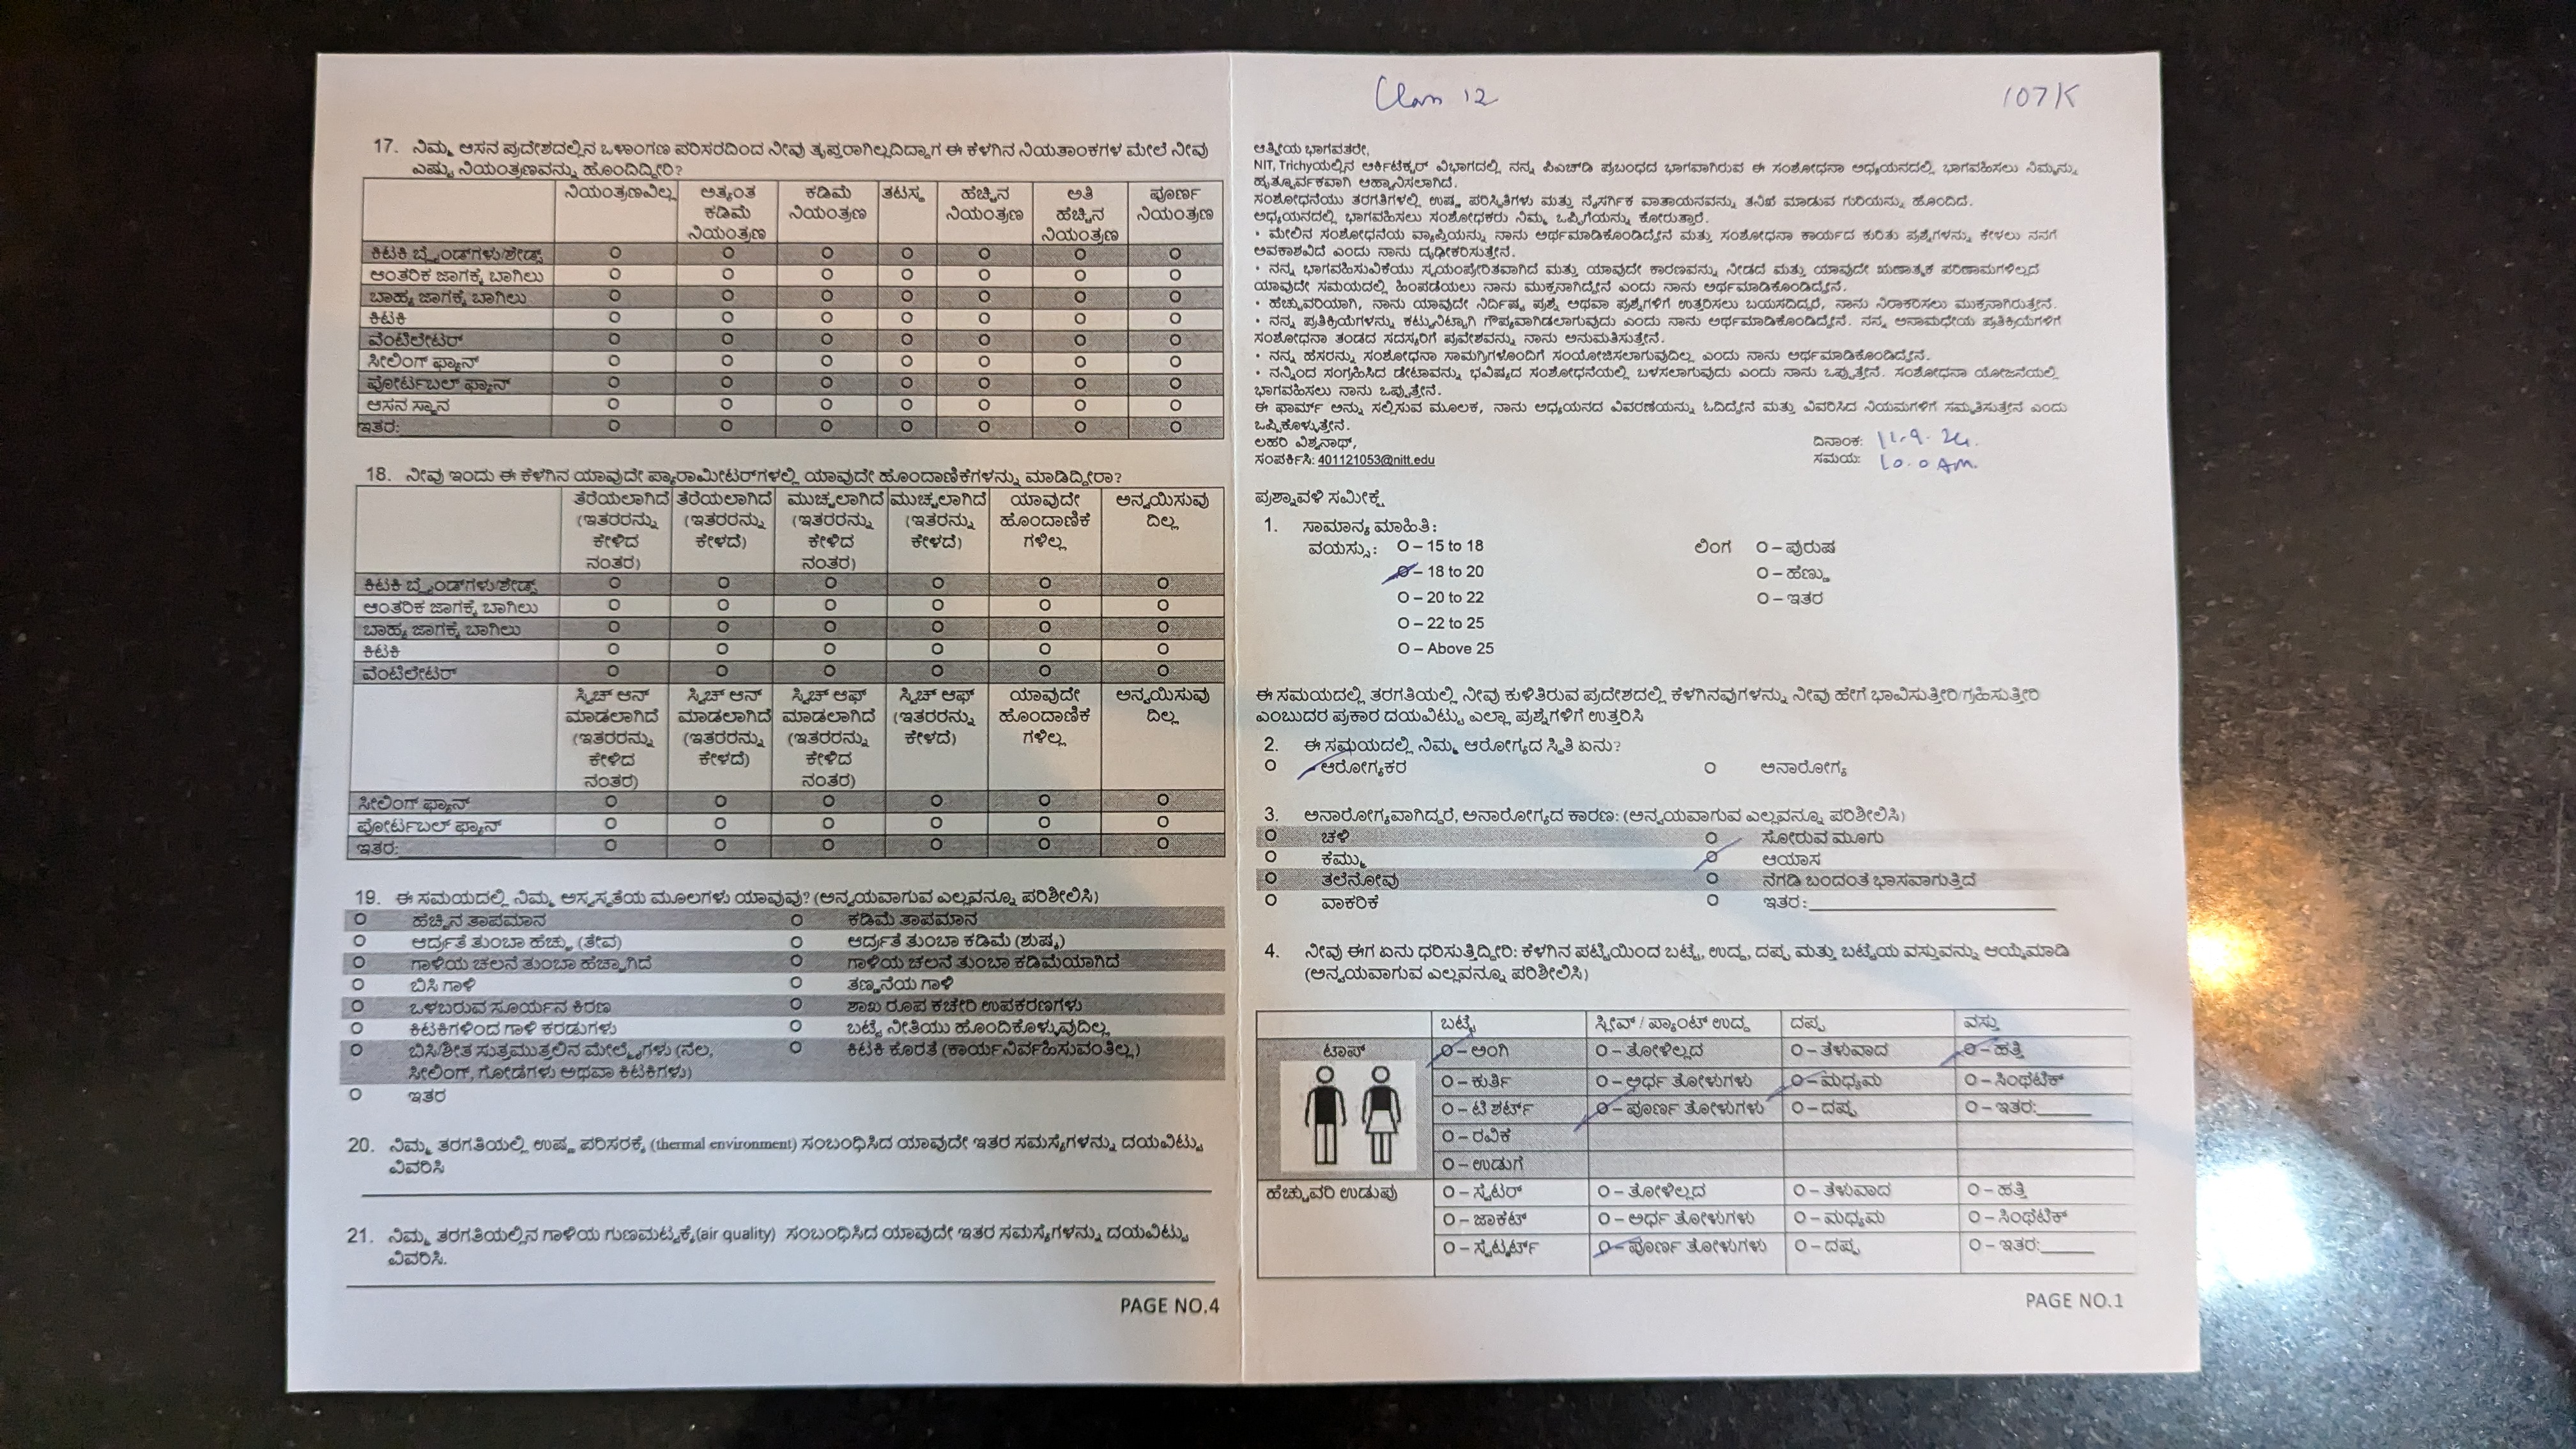 17. ನಿಮ್ಮ ಆಸನ ಪ್ರದೇಶದಲ್ಲಿನ ಒಳಾಂಗಣ ಪರಿಸರದಿಂದ ನೀವು ತೃಪ್ತರಾಗಿಲ್ಲದಿದ್ದಾಗ ಈ ಕೆಳಗಿನ ನಿಯತಾಂಕಗಳ ಮೇಲೆ ನೀವು
ಎಷ್ಟು ನಿಯಂತ್ರಣವನ್ನು ಹೊಂದಿದ್ದೀರಿ?
ನಿಯಂತ್ರಣವಿಲ್ಲ ಅತ್ಯಂತ ಕಡಿಮೆ ತಟಸ್ಥ ಹೆಚ್ಚಿನ ಅತಿ ಪೂರ್ಣ
ಕಡಿಮೆ ನಿಯಂತ್ರಣ ನಿಯಂತ್ರಣ ಹೆಚ್ಚಿನ ನಿಯಂತ್ರಣ
ನಿಯಂತ್ರಣ ನಿಯಂತ್ರಣ
ಕಿಟಕಿ ಬ್ಲೈಂಡ್‌ಗಳು/ಶೇಡ್ಸ್ O O O O O O O
ಆಂತರಿಕ ಜಾಗಕ್ಕೆ ಬಾಗಿಲು O O O O O O O
ಬಾಹ್ಯ ಜಾಗಕ್ಕೆ ಬಾಗಿಲು O O O O O O O
ಕಿಟಕಿ O O O O O O O
ವೆಂಟಿಲೇಟರ್ O O O O O O O
ಸೀಲಿಂಗ್ ಫ್ಯಾನ್ O O O O O O O
ಪೋರ್ಟಬಲ್ ಫ್ಯಾನ್ O O O O O O O
ಆಸನ ಸ್ಥಾನ O O O O O O O
ಇತರ: O O O O O O O
18. ನೀವು ಇಂದು ಈ ಕೆಳಗಿನ ಯಾವುದೇ ಪ್ಯಾರಾಮೀಟರ್‌ಗಳಲ್ಲಿ ಯಾವುದೇ ಹೊಂದಾಣಿಕೆಗಳನ್ನು ಮಾಡಿದ್ದೀರಾ?
ತೆರೆಯಲಾಗಿದೆ ತೆರೆಯಲಾಗಿದೆ ಮುಚ್ಚಲಾಗಿದೆ ಮುಚ್ಚಲಾಗಿದೆ ಯಾವುದೇ ಅನ್ವಯಿಸುವು
(ಇತರರನ್ನು (ಇತರರನ್ನು (ಇತರರನ್ನು (ಇತರನ್ನು ಹೊಂದಾಣಿಕೆ ದಿಲ್ಲ
ಕೇಳಿದ ಕೇಳದೆ) ಕೇಳಿದ ಕೇಳದೆ) ಗಳಿಲ್ಲ
ನಂತರ) ನಂತರ)
ಕಿಟಕಿ ಬ್ಲೈಂಡ್‌ಗಳು/ಶೇಡ್ಸ್ O O O O O O
ಆಂತರಿಕ ಜಾಗಕ್ಕೆ ಬಾಗಿಲು O O O O O O
ಬಾಹ್ಯ ಜಾಗಕ್ಕೆ ಬಾಗಿಲು O O O O O O
ಕಿಟಕಿ O O O O O O
ವೆಂಟಿಲೇಟರ್ O O O O O O
ಸ್ವಿಚ್ ಆನ್ ಸ್ವಿಚ್ ಆನ್ ಸ್ವಿಚ್ ಆಫ್ ಸ್ವಿಚ್ ಆಫ್ ಯಾವುದೇ ಅನ್ವಯಿಸುವು
ಮಾಡಲಾಗಿದೆ ಮಾಡಲಾಗಿದೆ ಮಾಡಲಾಗಿದೆ (ಇತರರನ್ನು ಹೊಂದಾಣಿಕೆ ದಿಲ್ಲ
(ಇತರರನ್ನು (ಇತರರನ್ನು (ಇತರರನ್ನು ಕೇಳದೆ) ಗಳಿಲ್ಲ
ಕೇಳಿದ ಕೇಳದೆ) ಕೇಳಿದ
ನಂತರ) ನಂತರ)
ಸೀಲಿಂಗ್ ಫ್ಯಾನ್ O O O O O O
ಪೋರ್ಟಬಲ್ ಫ್ಯಾನ್ O O O O O O
ಇತರ: O O O O O O
19. ಈ ಸಮಯದಲ್ಲಿ ನಿಮ್ಮ ಅಸ್ವಸ್ಥತೆಯ ಮೂಲಗಳು ಯಾವುವು? (ಅನ್ವಯವಾಗುವ ಎಲ್ಲವನ್ನೂ ಪರಿಶೀಲಿಸಿ)
O ಹೆಚ್ಚಿನ ತಾಪಮಾನ O ಕಡಿಮೆ ತಾಪಮಾನ
O ಆರ್ದ್ರತೆ ತುಂಬಾ ಹೆಚ್ಚು (ತೇವ) O ಆರ್ದ್ರತೆ ತುಂಬಾ ಕಡಿಮೆ (ಶುಷ್ಕ)
O ಗಾಳಿಯ ಚಲನೆ ತುಂಬಾ ಹೆಚ್ಚಾಗಿದೆ O ಗಾಳಿಯ ಚಲನೆ ತುಂಬಾ ಕಡಿಮೆಯಾಗಿದೆ
O ಬಿಸಿ ಗಾಳಿ O ತಣ್ಣನೆಯ ಗಾಳಿ
O ಒಳಬರುವ ಸೂರ್ಯನ ಕಿರಣ O ಶಾಖ ರೂಪ ಕಚೇರಿ ಉಪಕರಣಗಳು
O ಕಿಟಕಿಗಳಿಂದ ಗಾಳಿ ಕರಡುಗಳು O ಬಟ್ಟೆ ನೀತಿಯು ಹೊಂದಿಕೊಳ್ಳುವುದಿಲ್ಲ
O ಬಿಸಿ/ಶೀತ ಸುತ್ತಮುತ್ತಲಿನ ಮೇಲ್ಮೈಗಳು (ನೆಲ, O ಕಿಟಕಿ ಕೊರತೆ (ಕಾರ್ಯನಿರ್ವಹಿಸುವಂತಿಲ್ಲ)
ಸೀಲಿಂಗ್, ಗೋಡೆಗಳು ಅಥವಾ ಕಿಟಕಿಗಳು)
O ಇತರ
20. ನಿಮ್ಮ ತರಗತಿಯಲ್ಲಿ ಉಷ್ಣ ಪರಿಸರಕ್ಕೆ (thermal environment) ಸಂಬಂಧಿಸಿದ ಯಾವುದೇ ಇತರ ಸಮಸ್ಯೆಗಳನ್ನು ದಯವಿಟ್ಟು
ವಿವರಿಸಿ
21. ನಿಮ್ಮ ತರಗತಿಯಲ್ಲಿನ ಗಾಳಿಯ ಗುಣಮಟ್ಟಕ್ಕೆ(air quality) ಸಂಬಂಧಿಸಿದ ಯಾವುದೇ ಇತರ ಸಮಸ್ಯೆಗಳನ್ನು ದಯವಿಟ್ಟು
ವಿವರಿಸಿ.
PAGE NO.4
Class 12 107K
ಆತ್ಮೀಯ ಭಾಗವತರೇ,
NIT, Trichyಯಲ್ಲಿನ ಆರ್ಕಿಟೆಕ್ಚರ್ ವಿಭಾಗದಲ್ಲಿ ನನ್ನ ಪಿಎಚ್‌ಡಿ ಪ್ರಬಂಧದ ಭಾಗವಾಗಿರುವ ಈ ಸಂಶೋಧನಾ ಅಧ್ಯಯನದಲ್ಲಿ ಭಾಗವಹಿಸಲು ನಿಮ್ಮನ್ನು
ಹೃತ್ಪೂರ್ವಕವಾಗಿ ಆಹ್ವಾನಿಸಲಾಗಿದೆ.
ಸಂಶೋಧನೆಯು ತರಗತಿಗಳಲ್ಲಿ ಉಷ್ಣ ಪರಿಸ್ಥಿತಿಗಳು ಮತ್ತು ನೈಸರ್ಗಿಕ ವಾತಾಯನವನ್ನು ತನಿಖೆ ಮಾಡುವ ಗುರಿಯನ್ನು ಹೊಂದಿದೆ.
ಅಧ್ಯಯನದಲ್ಲಿ ಭಾಗವಹಿಸಲು ಸಂಶೋಧಕರು ನಿಮ್ಮ ಒಪ್ಪಿಗೆಯನ್ನು ಕೋರುತ್ತಾರೆ.
• ಮೇಲಿನ ಸಂಶೋಧನೆಯ ವ್ಯಾಪ್ತಿಯನ್ನು ನಾನು ಅರ್ಥಮಾಡಿಕೊಂಡಿದ್ದೇನೆ ಮತ್ತು ಸಂಶೋಧನಾ ಕಾರ್ಯದ ಕುರಿತು ಪ್ರಶ್ನೆಗಳನ್ನು ಕೇಳಲು ನನಗೆ
ಅವಕಾಶವಿದೆ ಎಂದು ನಾನು ದೃಢೀಕರಿಸುತ್ತೇನೆ.
• ನನ್ನ ಭಾಗವಹಿಸುವಿಕೆಯು ಸ್ವಯಂಪ್ರೇರಿತವಾಗಿದೆ ಮತ್ತು ಯಾವುದೇ ಕಾರಣವನ್ನು ನೀಡದೆ ಮತ್ತು ಯಾವುದೇ ಋಣಾತ್ಮಕ ಪರಿಣಾಮಗಳಿಲ್ಲದೆ
ಯಾವುದೇ ಸಮಯದಲ್ಲಿ ಹಿಂಪಡೆಯಲು ನಾನು ಮುಕ್ತನಾಗಿದ್ದೇನೆ ಎಂದು ನಾನು ಅರ್ಥಮಾಡಿಕೊಂಡಿದ್ದೇನೆ.
• ಹೆಚ್ಚುವರಿಯಾಗಿ, ನಾನು ಯಾವುದೇ ನಿರ್ದಿಷ್ಟ ಪ್ರಶ್ನೆ ಅಥವಾ ಪ್ರಶ್ನೆಗಳಿಗೆ ಉತ್ತರಿಸಲು ಬಯಸದಿದ್ದರೆ, ನಾನು ನಿರಾಕರಿಸಲು ಮುಕ್ತನಾಗಿರುತ್ತೇನೆ.
• ನನ್ನ ಪ್ರತಿಕ್ರಿಯೆಗಳನ್ನು ಕಟ್ಟುನಿಟ್ಟಾಗಿ ಗೌಪ್ಯವಾಗಿಡಲಾಗುವುದು ಎಂದು ನಾನು ಅರ್ಥಮಾಡಿಕೊಂಡಿದ್ದೇನೆ. ನನ್ನ ಅನಾಮಧೇಯ ಪ್ರತಿಕ್ರಿಯೆಗಳಿಗೆ
ಸಂಶೋಧನಾ ತಂಡದ ಸದಸ್ಯರಿಗೆ ಪ್ರವೇಶವನ್ನು ನಾನು ಅನುಮತಿಸುತ್ತೇನೆ.
• ನನ್ನ ಹೆಸರನ್ನು ಸಂಶೋಧನಾ ಸಾಮಗ್ರಿಗಳೊಂದಿಗೆ ಸಂಯೋಜಿಸಲಾಗುವುದಿಲ್ಲ ಎಂದು ನಾನು ಅರ್ಥಮಾಡಿಕೊಂಡಿದ್ದೇನೆ.
• ನನ್ನಿಂದ ಸಂಗ್ರಹಿಸಿದ ಡೇಟಾವನ್ನು ಭವಿಷ್ಯದ ಸಂಶೋಧನೆಯಲ್ಲಿ ಬಳಸಲಾಗುವುದು ಎಂದು ನಾನು ಒಪ್ಪುತ್ತೇನೆ. ಸಂಶೋಧನಾ ಯೋಜನೆಯಲ್ಲಿ
ಭಾಗವಹಿಸಲು ನಾನು ಒಪ್ಪುತ್ತೇನೆ.
ಈ ಫಾರ್ಮ್ ಅನ್ನು ಸಲ್ಲಿಸುವ ಮೂಲಕ, ನಾನು ಅಧ್ಯಯನದ ವಿವರಣೆಯನ್ನು ಓದಿದ್ದೇನೆ ಮತ್ತು ವಿವರಿಸಿದ ನಿಯಮಗಳಿಗೆ ಸಮ್ಮತಿಸುತ್ತೇನೆ ಎಂದು
ಒಪ್ಪಿಕೊಳ್ಳುತ್ತೇನೆ.
ಲಹರಿ ವಿಶ್ವನಾಥ್,
ಸಂಪರ್ಕಿಸಿ: 401121053@nitt.edu
ದಿನಾಂಕ: 11.9.24.
ಸಮಯ: 10.0 AM
ಪ್ರಶ್ನಾವಳಿ ಸಮೀಕ್ಷೆ
1. ಸಾಮಾನ್ಯ ಮಾಹಿತಿ:
ವಯಸ್ಸು: O – 15 to 18 ಲಿಂಗ O – ಪುರುಷ
O – 18 to 20 O – ಹೆಣ್ಣು
O – 20 to 22 O – ಇತರ
O – 22 to 25
O – Above 25
ಈ ಸಮಯದಲ್ಲಿ ತರಗತಿಯಲ್ಲಿ ನೀವು ಕುಳಿತಿರುವ ಪ್ರದೇಶದಲ್ಲಿ ಕೆಳಗಿನವುಗಳನ್ನು ನೀವು ಹೇಗೆ ಭಾವಿಸುತ್ತೀರಿ/ಗ್ರಹಿಸುತ್ತೀರಿ
ಎಂಬುದರ ಪ್ರಕಾರ ದಯವಿಟ್ಟು ಎಲ್ಲಾ ಪ್ರಶ್ನೆಗಳಿಗೆ ಉತ್ತರಿಸಿ
2. ಈ ಸಮಯದಲ್ಲಿ ನಿಮ್ಮ ಆರೋಗ್ಯದ ಸ್ಥಿತಿ ಏನು?
O ಆರೋಗ್ಯಕರ O ಅನಾರೋಗ್ಯ
3. ಅನಾರೋಗ್ಯವಾಗಿದ್ದರೆ, ಅನಾರೋಗ್ಯದ ಕಾರಣ: (ಅನ್ವಯವಾಗುವ ಎಲ್ಲವನ್ನೂ ಪರಿಶೀಲಿಸಿ)
O ಚಳಿ O ಸೋರುವ ಮೂಗು
O ಕೆಮ್ಮು O ಆಯಾಸ
O ತಲೆನೋವು O ನೆಗಡಿ ಬಂದಂತೆ ಭಾಸವಾಗುತ್ತಿದೆ
O ವಾಕರಿಕೆ O ಇತರ:
4. ನೀವು ಈಗ ಏನು ಧರಿಸುತ್ತಿದ್ದೀರಿ: ಕೆಳಗಿನ ಪಟ್ಟಿಯಿಂದ ಬಟ್ಟೆ, ಉದ್ದ, ದಪ್ಪ ಮತ್ತು ಬಟ್ಟೆಯ ವಸ್ತುವನ್ನು ಆಯ್ಕೆಮಾಡಿ
(ಅನ್ವಯವಾಗುವ ಎಲ್ಲವನ್ನೂ ಪರಿಶೀಲಿಸಿ)
ಬಟ್ಟೆ ಸ್ಲೀವ್ / ಪ್ಯಾಂಟ್ ಉದ್ದ ದಪ್ಪ ವಸ್ತು
ಟಾಪ್ O – ಅಂಗಿ O – ತೋಳಿಲ್ಲದ O – ತೆಳುವಾದ O – ಹತ್ತಿ
O – ಕುರ್ತಿ O – ಅರ್ಧ ತೋಳುಗಳು O – ಮಧ್ಯಮ O – ಸಿಂಥೆಟಿಕ್
O – ಟಿ ಶರ್ಟ್ O – ಪೂರ್ಣ ತೋಳುಗಳು O – ದಪ್ಪ O – ಇತರ:
O – ರವಿಕೆ
O – ಉಡುಗೆ
ಹೆಚ್ಚುವರಿ ಉಡುಪು O – ಸ್ವೆಟರ್ O – ತೋಳಿಲ್ಲದ O – ತೆಳುವಾದ O – ಹತ್ತಿ
O – ಜಾಕೆಟ್ O – ಅರ್ಧ ತೋಳುಗಳು O – ಮಧ್ಯಮ O – ಸಿಂಥೆಟಿಕ್
O – ಸ್ವೆಟ್ಶರ್ಟ್ O – ಪೂರ್ಣ ತೋಳುಗಳು O – ದಪ್ಪ O – ಇತರ:
PAGE NO.1